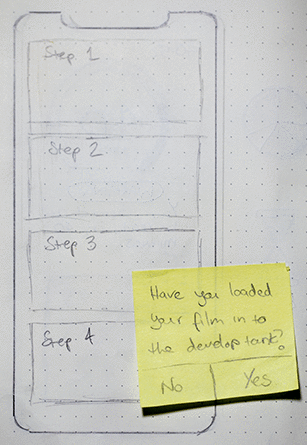 Step 1
Step 2
Step 3
Step 4
Have you loaded
your film in to
the develop tank?
No
Yes